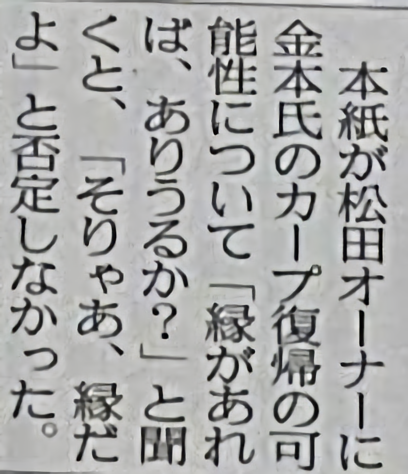 本紙が松田オーナーに
金本氏のカープ復帰の可
能性について「縁があれ
ば、ありうるか?」と聞
くと、「そりゃあ、縁だ
よ」と否定しなかった。